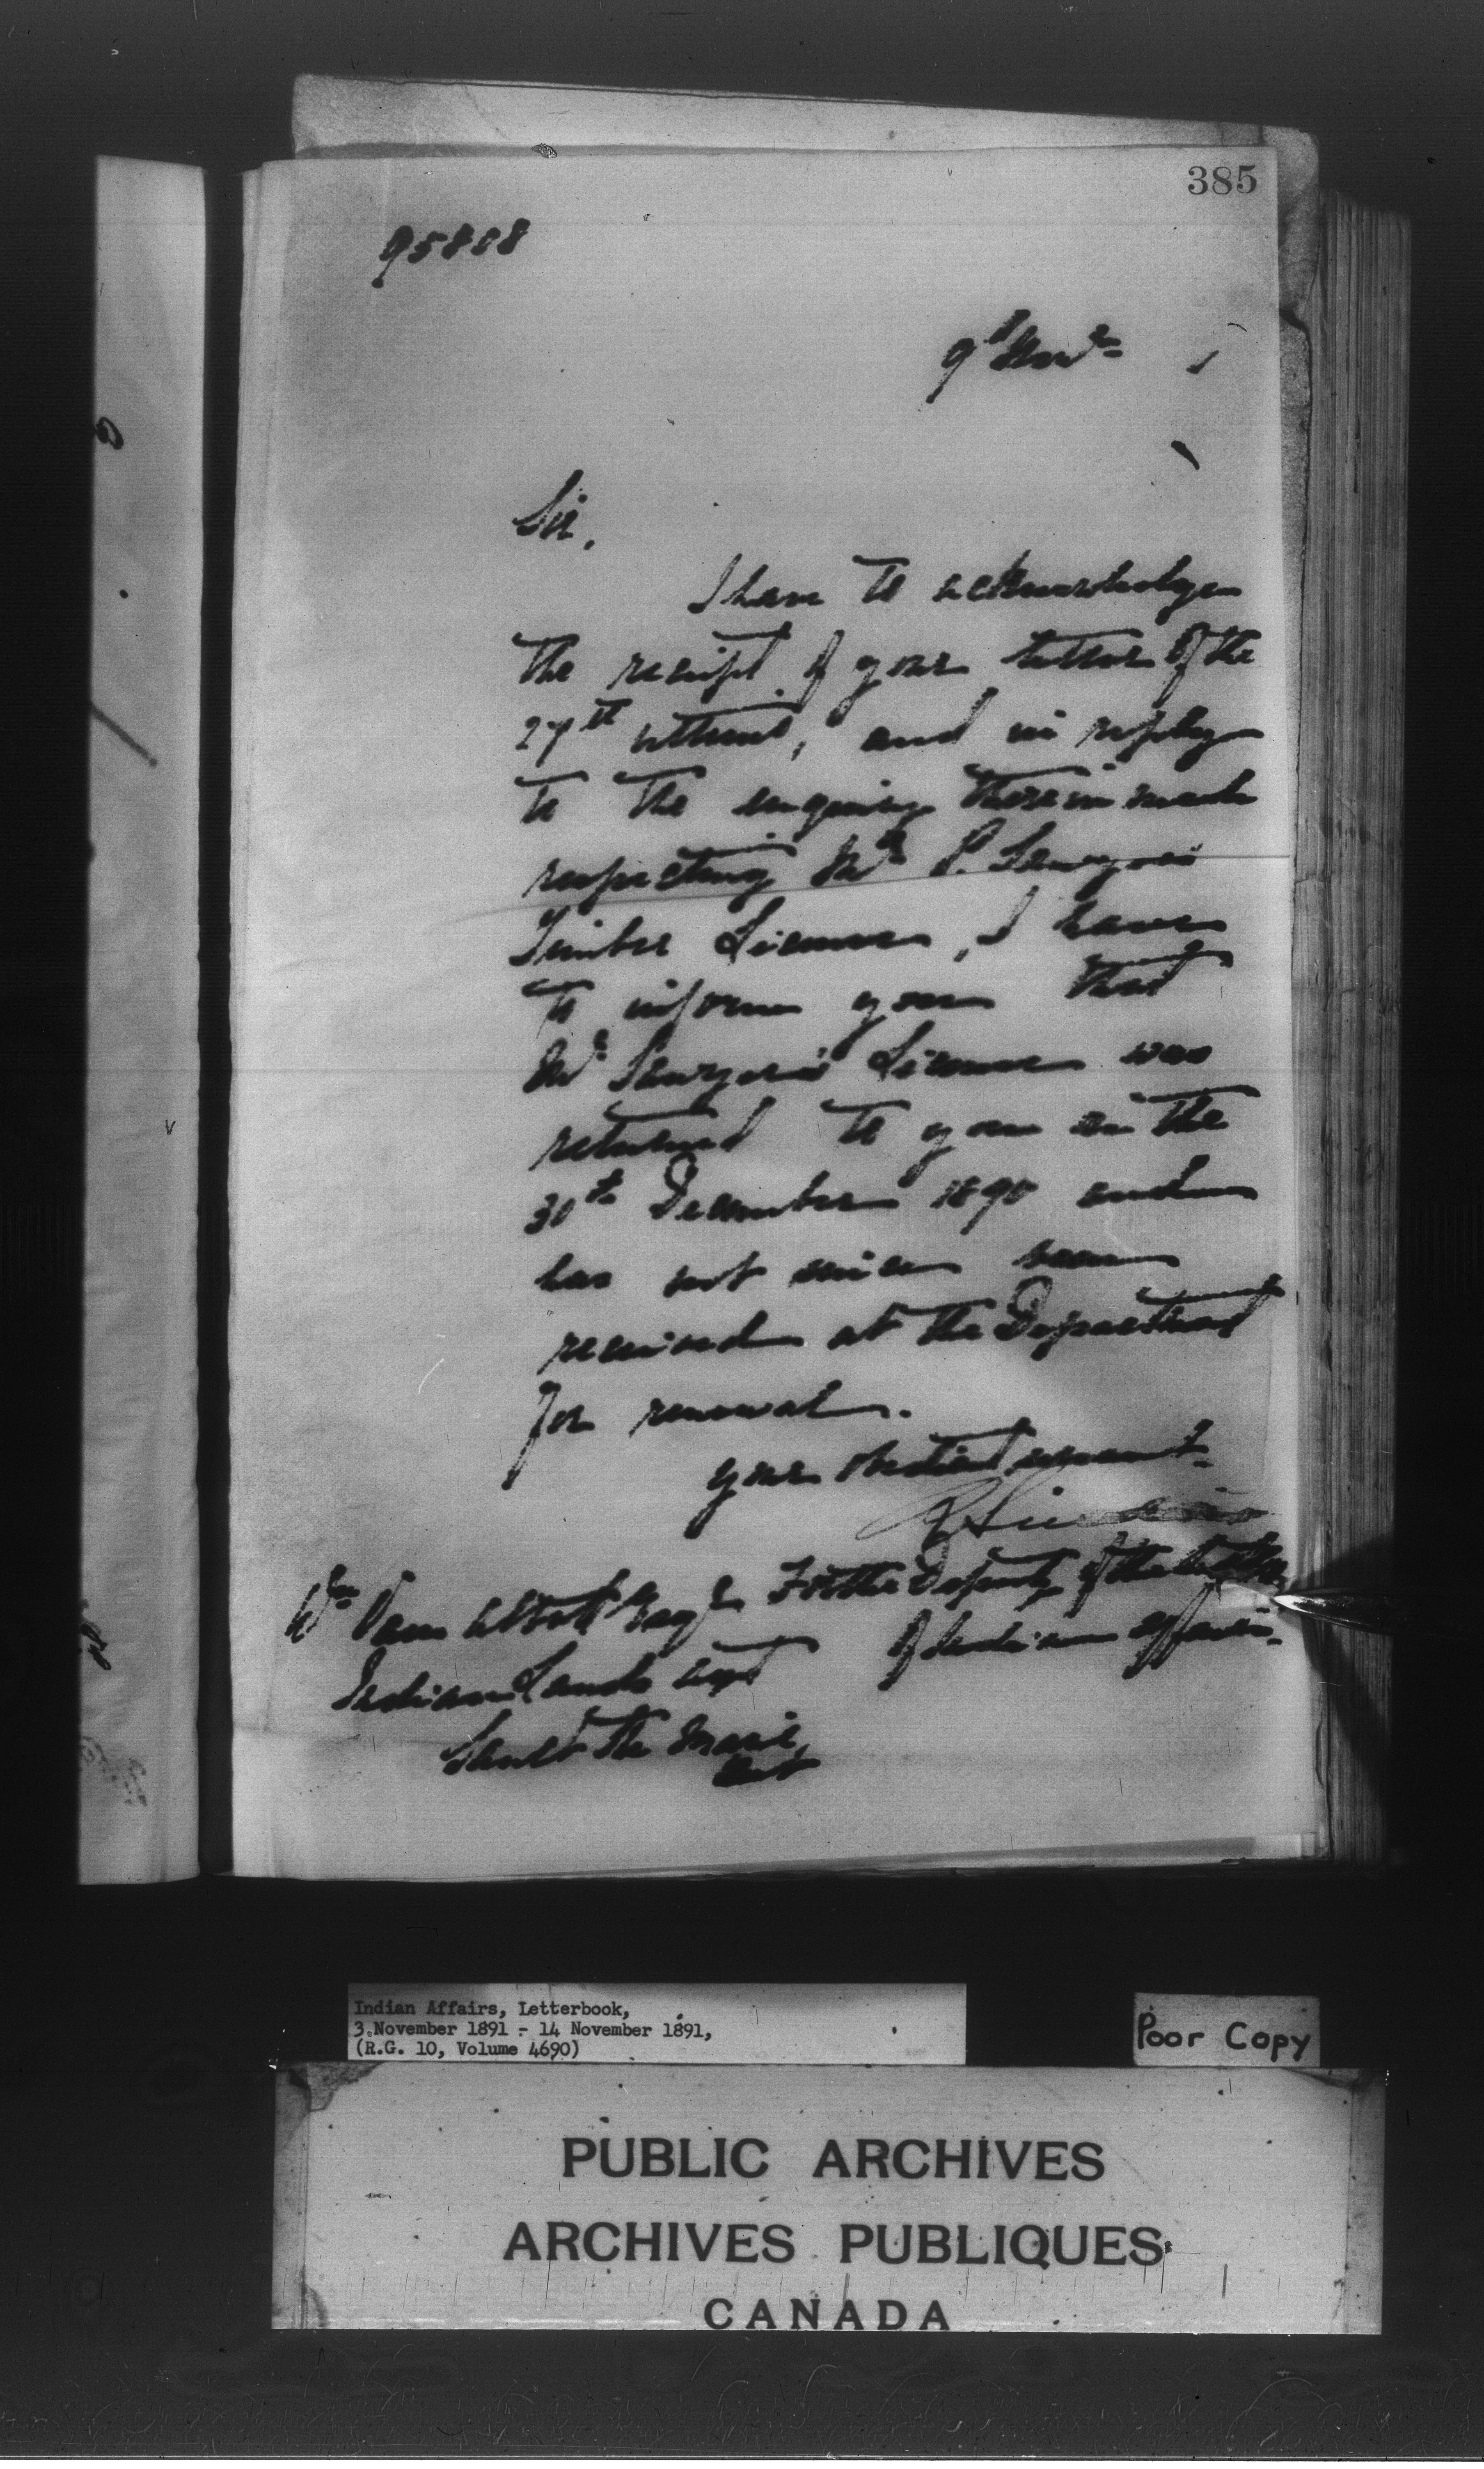 385
95808
9th Novr 1
Sir,
I have to acknowledge
the receipt of your letter of the
27th ultimo, and in reply
to the enquiry therein made
respecting Mr P. Sawyers
Timber License, I have
to inform you that
Mr Sawyer's License was
returned to you on the
30th December 1890 and
has not since been
received at the Department
for renewal.
your obedient servant
R Sinclair
Wm Van Abbott Esqr For the Deputy of the
Indian Lands Agt of Indian Affairs.
Sault Ste Marie,
Ont
Indian Affairs, Letterbook,
3 November 1891 - 14 November 1891,
(R.G. 10, Volume 4690)
Poor Copy
PUBLIC ARCHIVES
ARCHIVES PUBLIQUES
CANADA